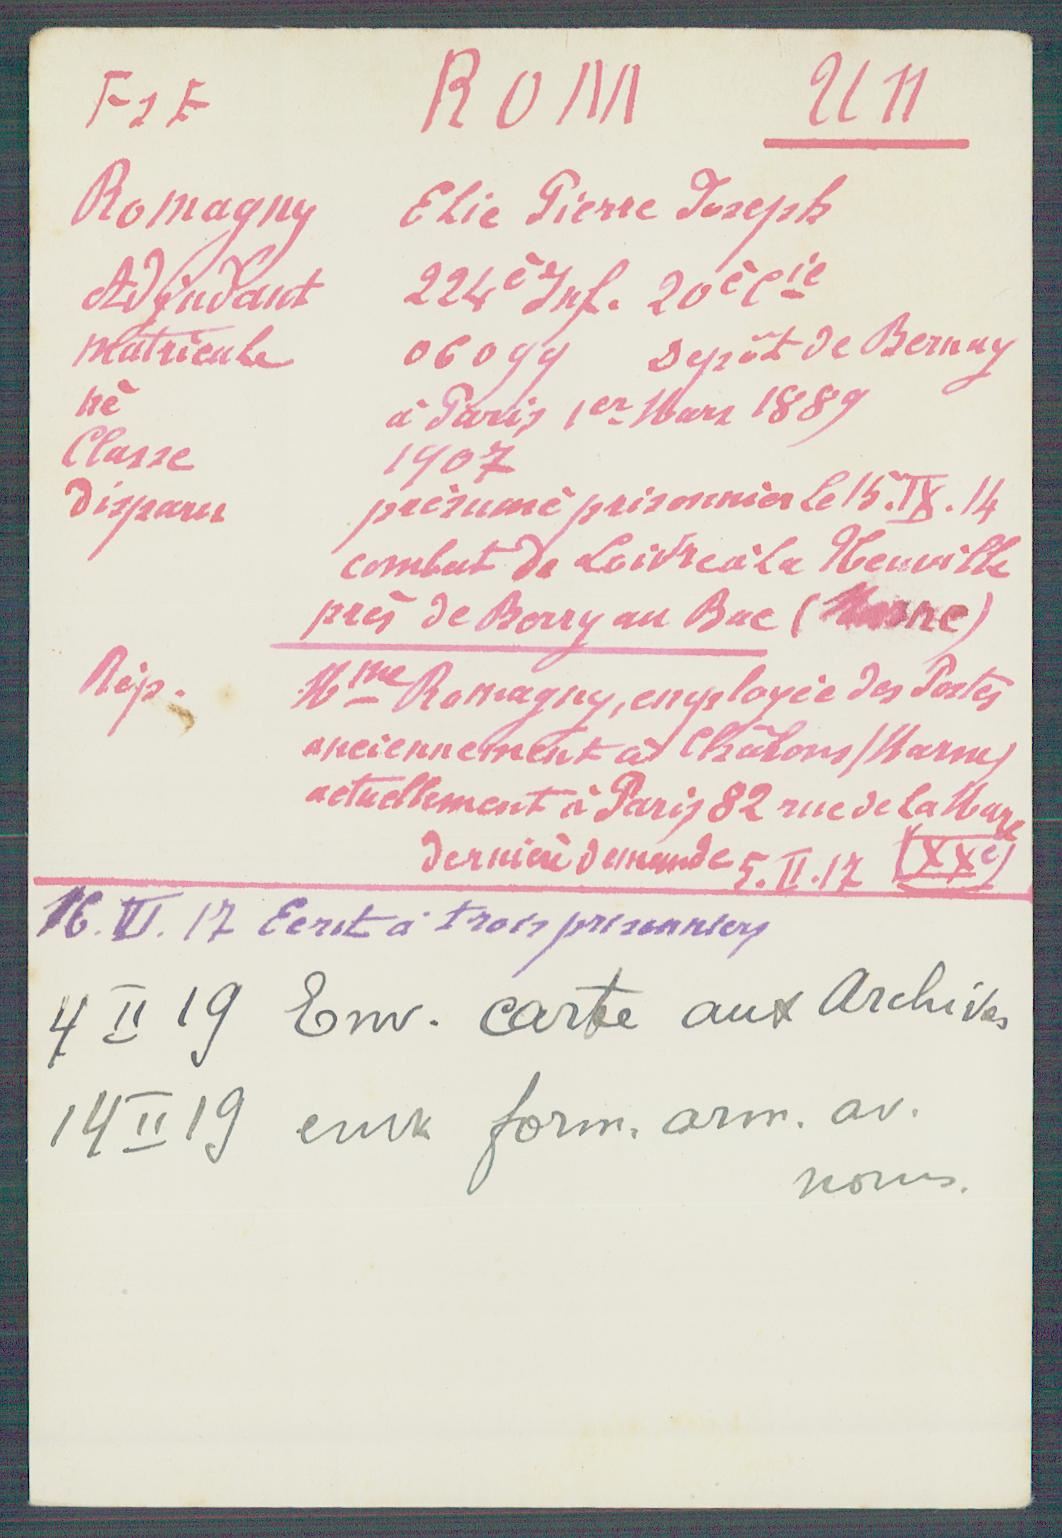 F s E ROM UN
Romagny Elie Pierre Joseph
Adjudant 224è Inf. 20è Cie
matricule 06099 Depôt de Bernay
né à Paris 1er Mars 1889
Classe 1907
disparu présumé prisonnier le 15.IX.14
combat de Loivre à la Neuville
près de Borry au Bac (
Rép. Mme Romagny, employée des Postes
anciennement à Châlons/Marne)
actuellement à Paris 82 rue de la Mare
dernière demande 5.II.17 (XXe)
16.VI.17 Ecrit à trois prisonniers
4 II 19 Env. carte aux Archives
14 II 19 form. arm. av.
noms.